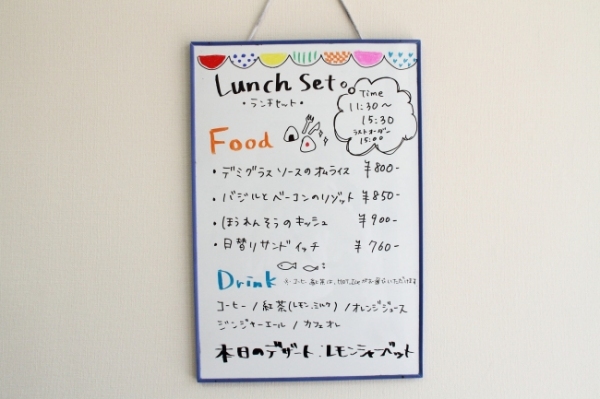 Lunch Set
・ランチセット・
Time
11:30〜
15:30
ラストオーダー
15:00
Food
・デミグラスソースのオムライス ¥800-
・バジルとベーコンのリゾット ¥850-
・ほうれんそうのキッシュ ¥900-
・日替りサンドイッチ ¥760-
Drink
コーヒー / 紅茶(レモン、ミルク) / オレンジジュース
ジンジャーエール / カフェオレ
本日のデザート:レモンシャーベット